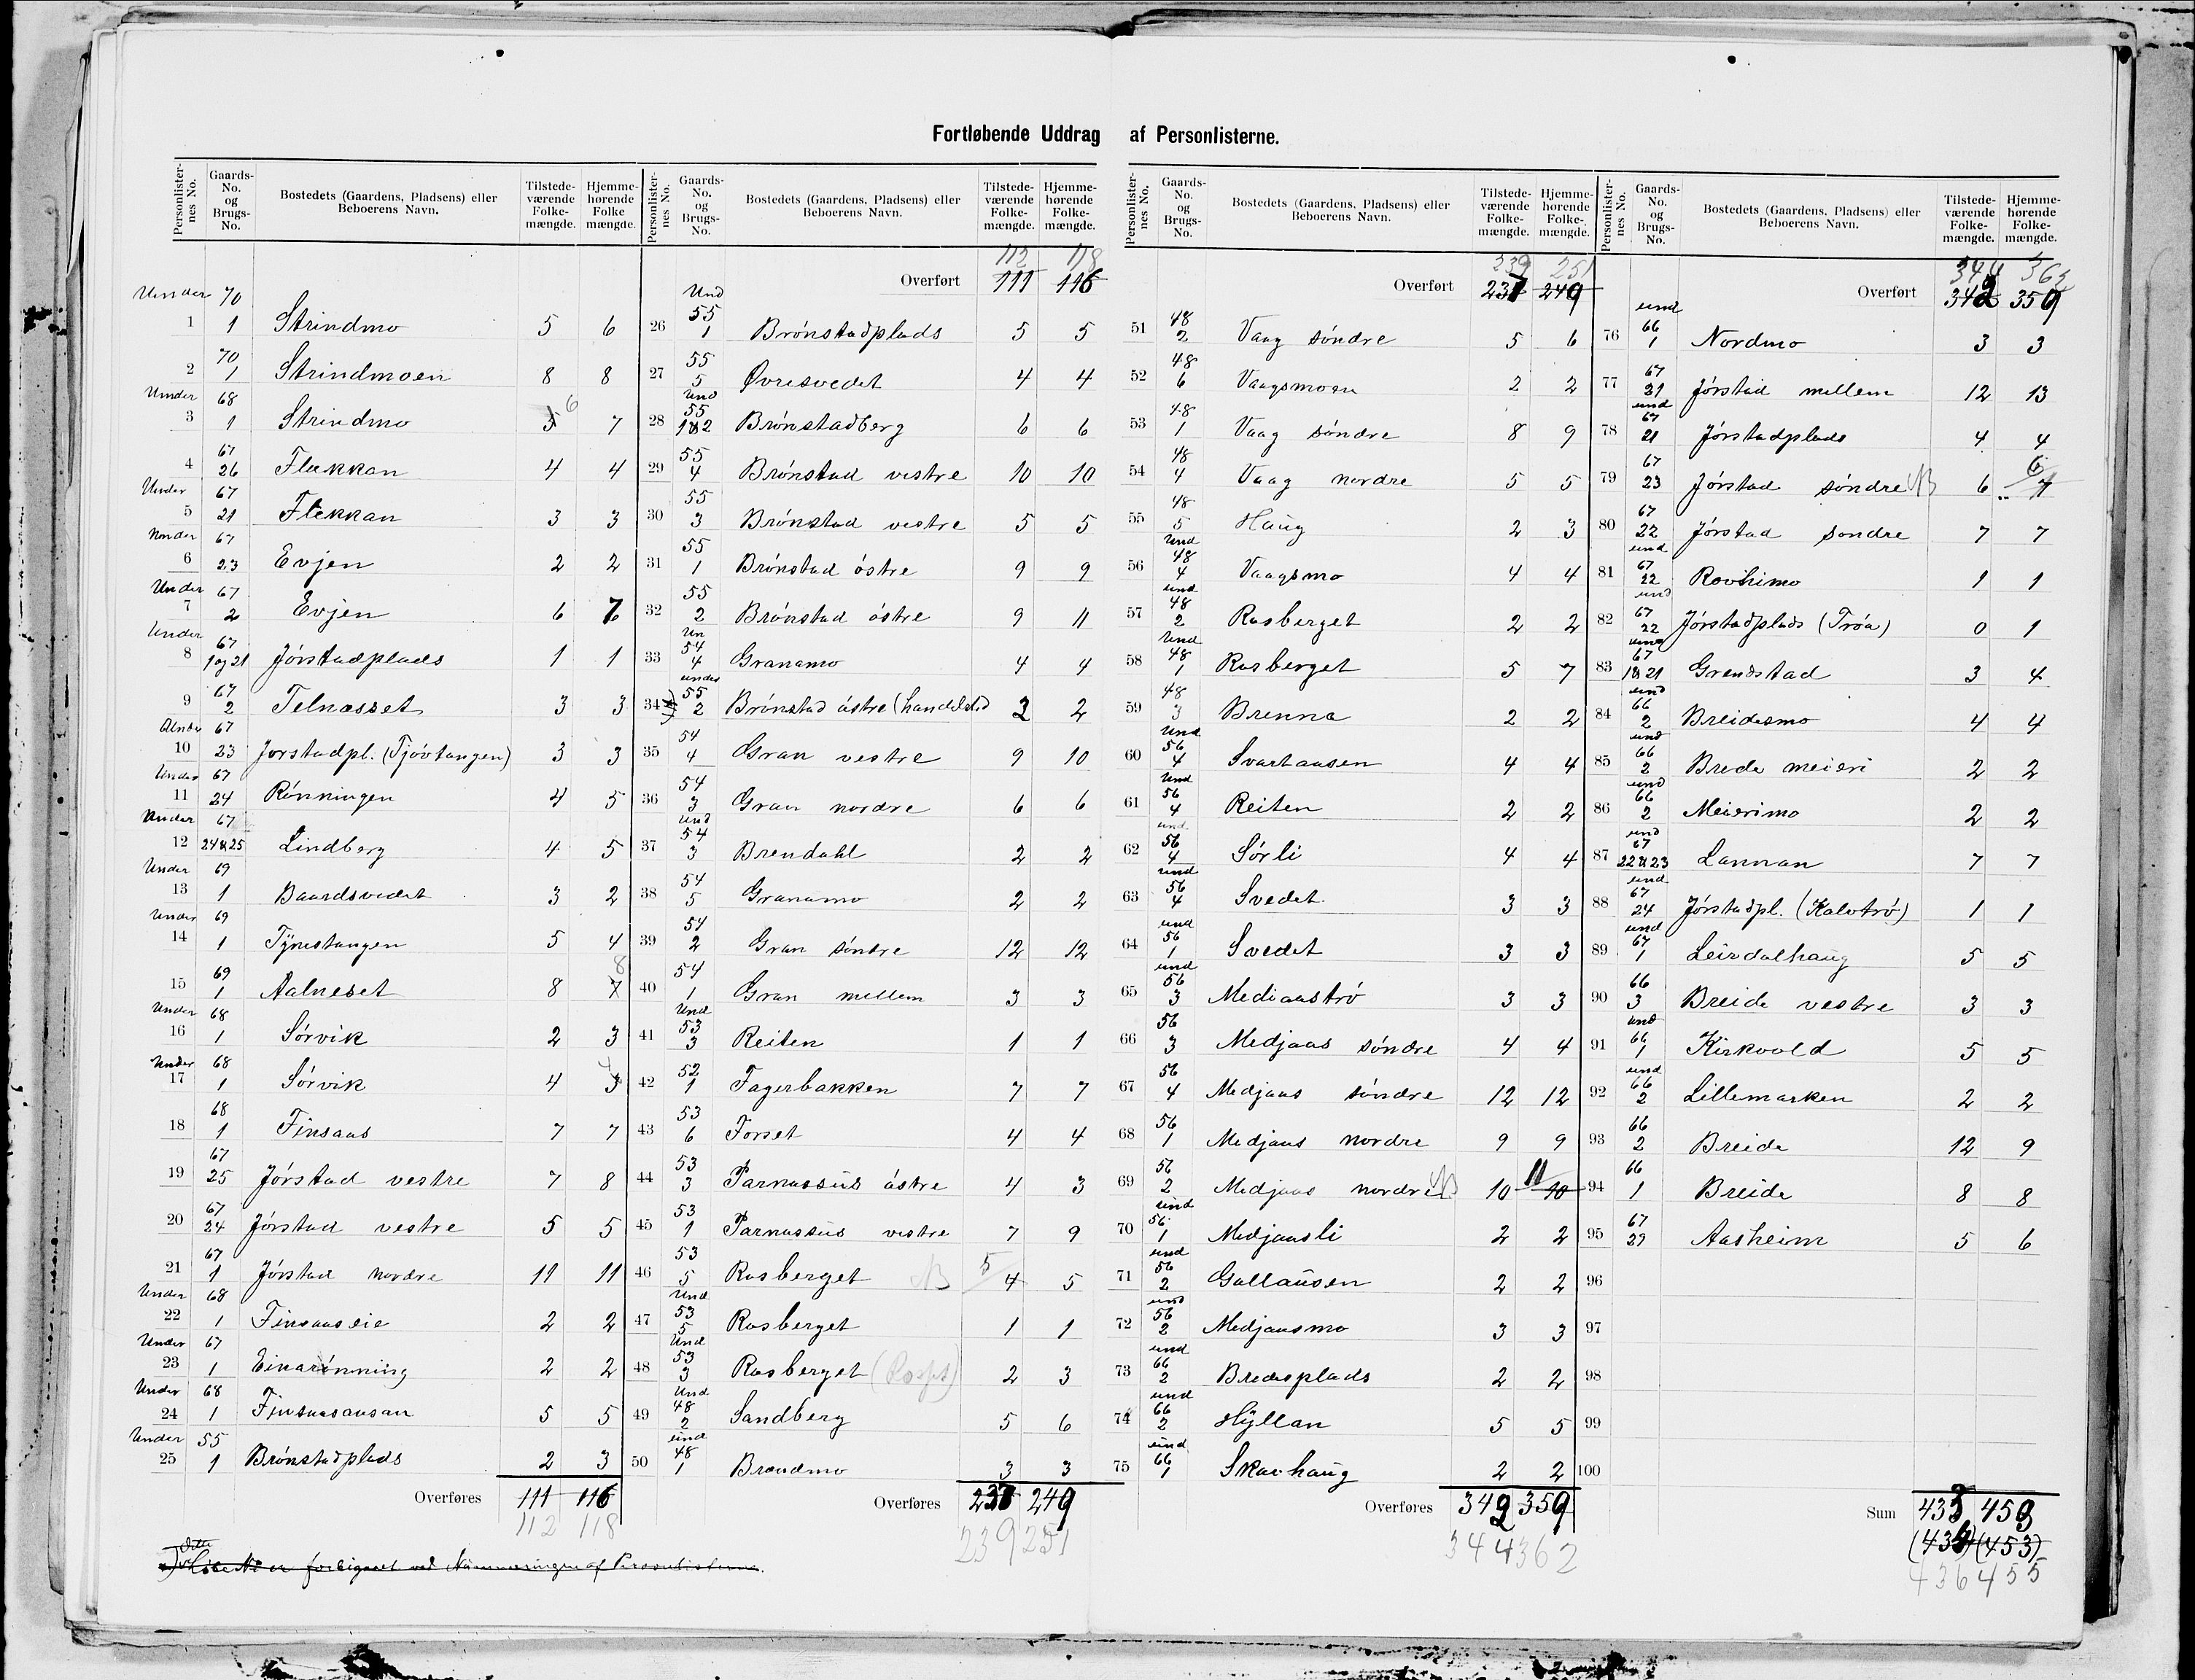 Fortløbende Uddrag af Personlisterne.
Personlisternes No. Gaards-No. og Brugs-No. Bostedets (Gaardens, Pladsens) eller Beboerens Navn. Tilstedeværende Folkemængde. Hjemmehørende Folkemængde.
Under 70
1 1 Strindmo 5 6
70
2 1 Strindmoen 8 8
Under 68
3 1 Strindmo 5 6 7
67
4 26 Flekkan 4 4
Under 67
5 21 Flekkan 3 3
Under 67
6 23 Evjen 2 2
Under 67
7 2 Evjen 6 7
Under 67
8 1 og 21 Jørstadplads 1 1
67
9 2 Telnæsset 3 3
Under 67
10 23 Jorstadpl. (Tjóvtangen) 3 3
Under 67
11 24 Rønningen 4 5
Under 67
12 24 & 25 Lindberg 4 5
Under 69
13 1 Baardsvedet 3 2
Under 69
14 1 Tynestangen 5 4
69
15 1 Aalneset 8 7 8
Under 68
16 1 Sørvik 2 3
Under 68
17 1 Sørvik 4 3 4
68
18 1 Finsaas 7 7
67
19 25 Jørstad vestre 7 8
67
20 24 Jørstad vestre 5 5
67
21 1 Jørstad nordre 11 11
Under 68
22 1 Finsaaseie 2 2
Under 67
23 1 Einarønning 2 2
Under 68
24 1 Finsaasausan 5 5
Under 55
25 1 Brønstadplads 2 3
Overføres 111 116
112 118
112 118
Overført 111 116
Und 55
26 1 Brønstadplads 5 5
55
27 5 Øvresvedet 4 4
Und 55
28 1 & 2 Brønstadberg 6 6
55
29 4 Brønstad vestre 10 10
55
30 3 Brønstad vestre 5 5
55
31 1 Brønstad østre 9 9
55
32 2 Brønstad østre 9 11
Un 54
33 4 Granamo 4 4
under 55
34 2 Brønstad østre (handelsted 2 2
54
35 4 Gran vestre 9 10
54
36 3 Gran nordre 6 6
und 54
37 3 Brendahl 2 2
54
38 5 Granamo 2 2
54
39 2 Gran søndre 12 12
54
40 1 Gran mellem 3 3
Und 53
41 3 Reiten 1 1
52
42 1 Fagerbakken 7 7
53
43 6 Forset 4 4
53
44 3 Parnassus østre 4 3
53
45 1 Parnassus vestre 7 9
53
46 5 Rosberget NB 5 4 5
Und 53
47 5 Rosberget 1 1
Und 53
48 3 Rosberget 2 3
Und 48
49 2 Sandberg 5 6
und 48
50 1 Brandmo 3 3
Overføres 237 249
239 251
239 251
Overført 237 249
48
51 2 Vaag søndre 5 6
48
52 6 Vaagsmoen 2 2
48
53 1 Vaag søndre 8 9
48
54 4 Vaag nordre 5 5
48
55 5 Haug 2 3
Und 48
56 4 Vaagsmo 4 4
und 48
57 2 Rosberget 2 2
Und 48
58 1 Rosberget 5 7
48
59 3 Brenna 2 2
Und 56
60 4 Svartaasen 4 4
Und 56
61 4 Reiten 2 2
und 56
62 4 Sørli 4 4
und 56
63 4 Svedet 3 3
und 56
64 1 Svedet 3 3
und 56
65 3 Mediaastrø 3 3
56
66 3 Medjaas søndre 4 4
56
67 4 Medjaas søndre 12 12
56
68 1 Medjaas nordre 9 9
56
69 2 Medjaas nordre NB 10 11 10
und 56
70 1 Medjaasli 2 2
und 56
71 2 Gullausen 2 2
und 56
72 2 Medjaasmo 3 3
und 66
73 2 Bredesplads 2 2
und 66
74 2 Hyllan 5 5
und 66
75 1 Skavhaug 2 2
Overføres 342 359
344 362
344 362
Overført 342 359
und 66
76 1 Nordmo 3 3
67
77 21 Jørstad mellem 12 13
und 67
78 21 Jørstadplads 4 4
67
79 23 Jørstad søndre NB 6 6 7
67
80 22 Jørstad sondre 7 7
und 67
81 22 Rovhimo 1 1
und 67
82 22 Jørstadplads (Trøa) 0 1
und 67
83 1 & 21 Grendstad 3 4
und 66
84 2 Breidesmo 4 4
und 66
85 2 Brede meieri 2 2
und 66
86 2 Meierimo 2 2
und 67
87 22 & 23 Lannan 7 7
und 67
88 24 Jørstadpl. (Kalvtrø) 1 1
und 67
89 1 Leirdalhaug 5 5
66
90 3 Breide vestre 3 3
und 66
91 1 Kirkvold 5 5
und 66
92 2 Lillemarken 2 2
66
93 2 Breide 12 9
66
94 1 Breide 8 8
67
95 29 Aasheim 5 6
96
97
98
99
100
Sum 433 453
(434) (453)
436 455
dette Løbe No er forbigaaet ved Nummereringen af Personlisterne.